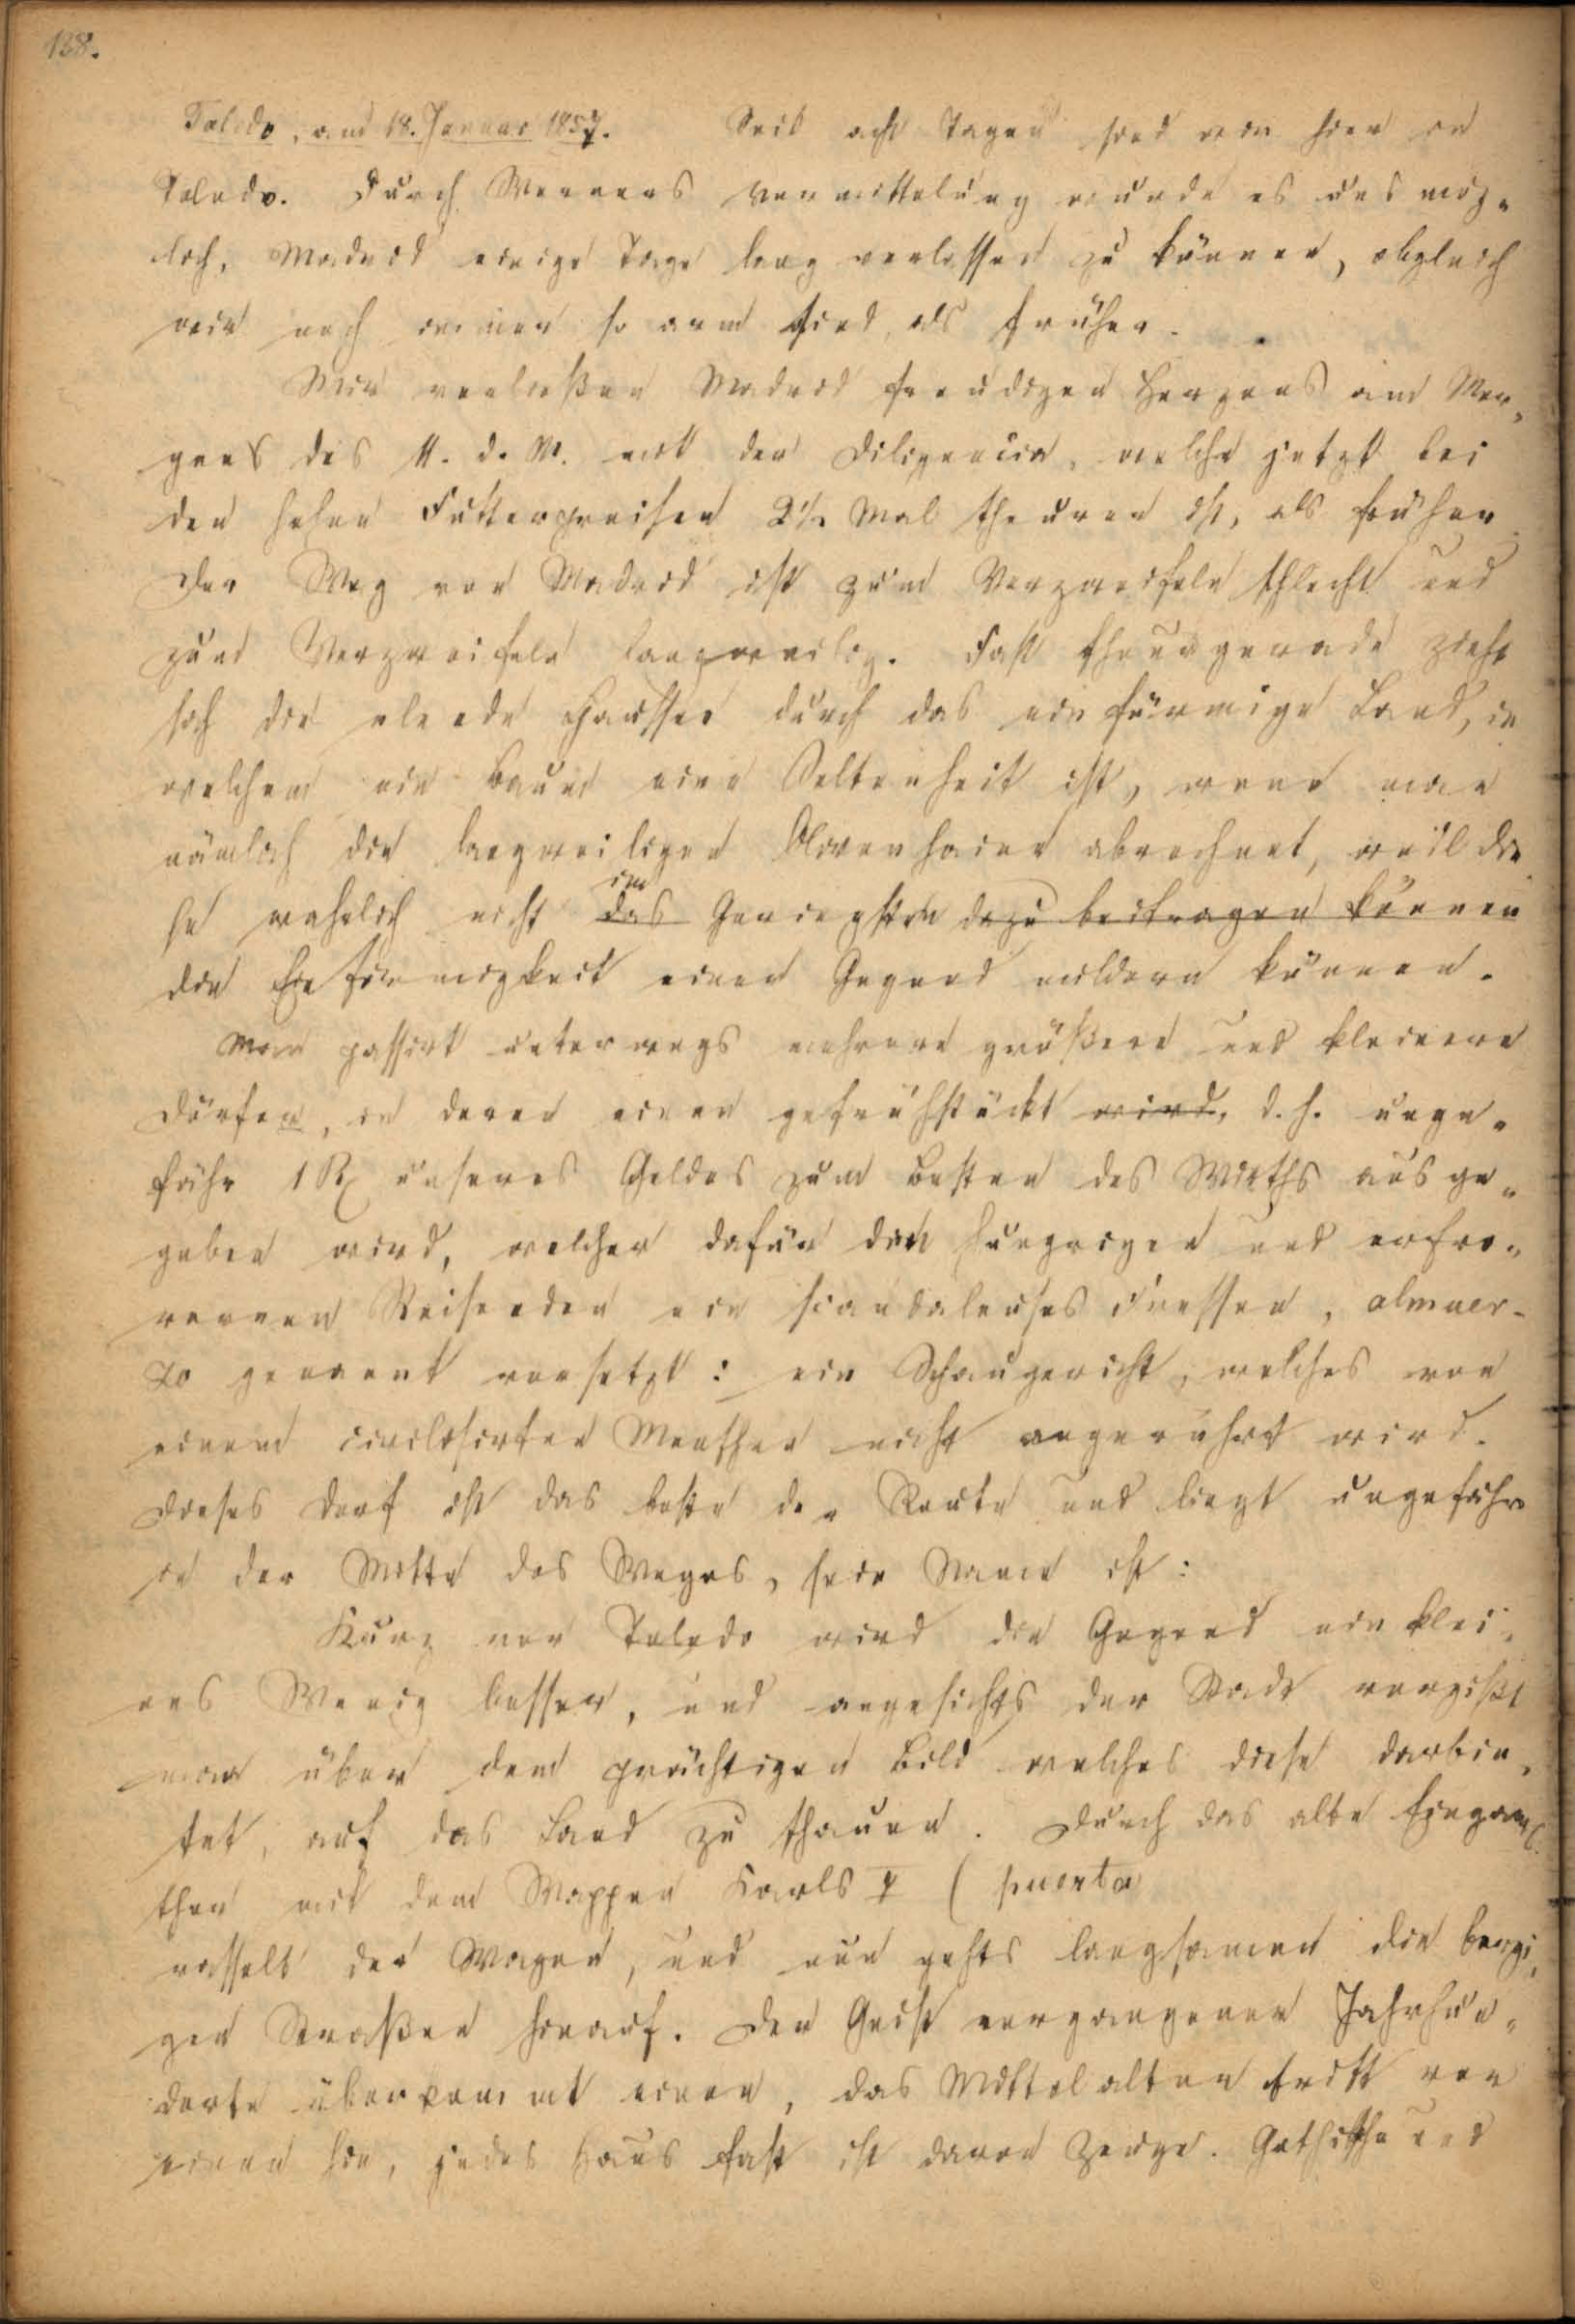 138.
Toledo, am 18. Januar 1857. Seit acht Tagen sind wir hier in
Toledo. Durch Werners Vermittelung wurde es uns mög-
lich, Madrid einige Tage lang verlassen zu können, obgleich
wir noch immer so arm sind, als früher.
Wir verließen Madrid freudigen Herzens am Mor-
gens des 11. d. M. mit der Diligencia, welche jetzt bei
den hohen Futterpreisen 2½ Mal theurer ist, als früher.
Der Weg von Madrid ist zum Verzweifeln schlecht und
zum Verzweifeln langweilig. Fast schnurgerade zieht
sich die elende Chaussee durch das einförmige Land, in
welchem ein Baum eine Seltenheit ist, wenn man
nämlich die langweiligen Olivenhaine abrechnet, weil die-
se wahrlich nicht das im Geringsten dazu beitragen können
die Einförmigkeit einer Gegend mildern können.
Man passirt unterwegs mehrere größere und kleinere
Dörfer, in deren einem gefrühstückt wird, d. h. unge-
fähr 1 R unseres Geldes zum Besten des Wirths ausge-
geben wird, welcher dafür den hungrigen und erfro-
renen Reisenden ein scandaleuses Fressen, almuer-
zo genannt vorsetzt: ein Schaugericht, welches von
einem civilisirten Menschen nicht angerührt wird.
Dieses Dorf ist das beste der Route und liegt ungefähr
in der Mitte des Weges, sein Name ist:
Kurz vor Toledo wird die Gegend ein klei-
nes Wenig besser, und angesichts der Stadt vergißt
man über dem prächtigen Bild welches diese darbie-
tet, auf das Land zu schauen. Durch das alte Eingangs-
thor mit dem Wappen Karls V (puerta
rasselt der Wagen, und nun gehts langsamer die bergi-
gen Straßen hinauf. Der Geist vergangener Jahrhun-
derte überkommt einen, das Mittelalter tritt vor
einen hin, jedes Haus fast ist davon Zeuge. Gothische und